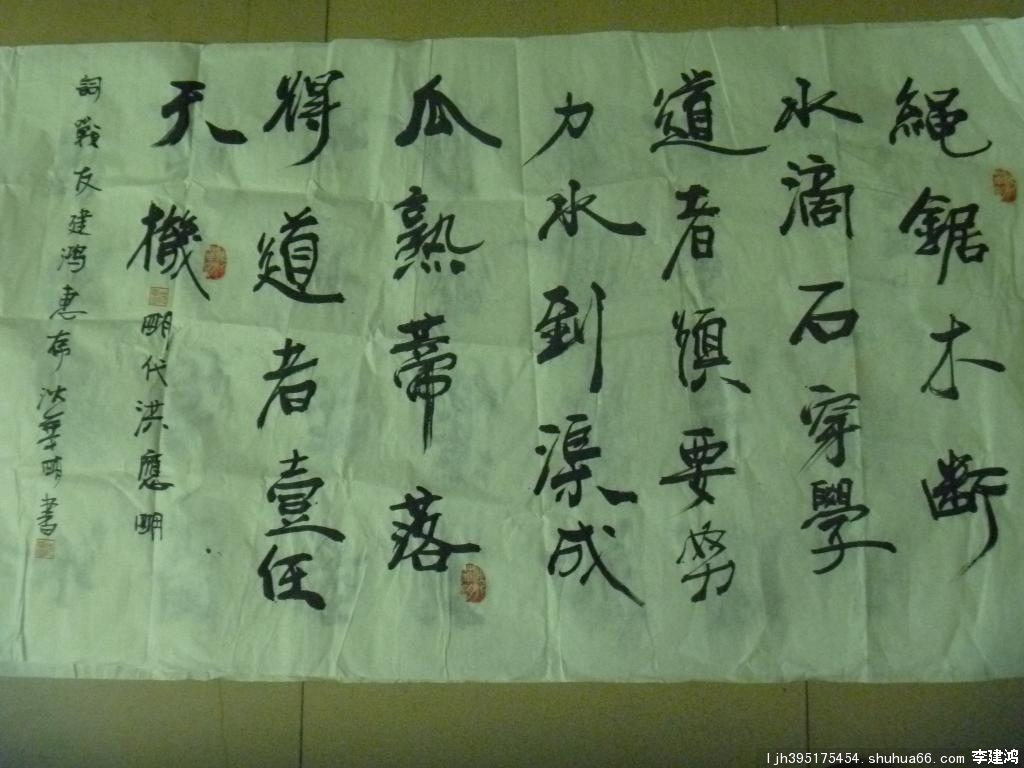 繩鋸木斷
水滴石穿學
道者須要努
力水到渠成
瓜熟蒂落
得道者壹任
天機
明代洪應明
戰友建鸿惠存 沈華明書
ljh395175454.shuhua66.com 李建鸿